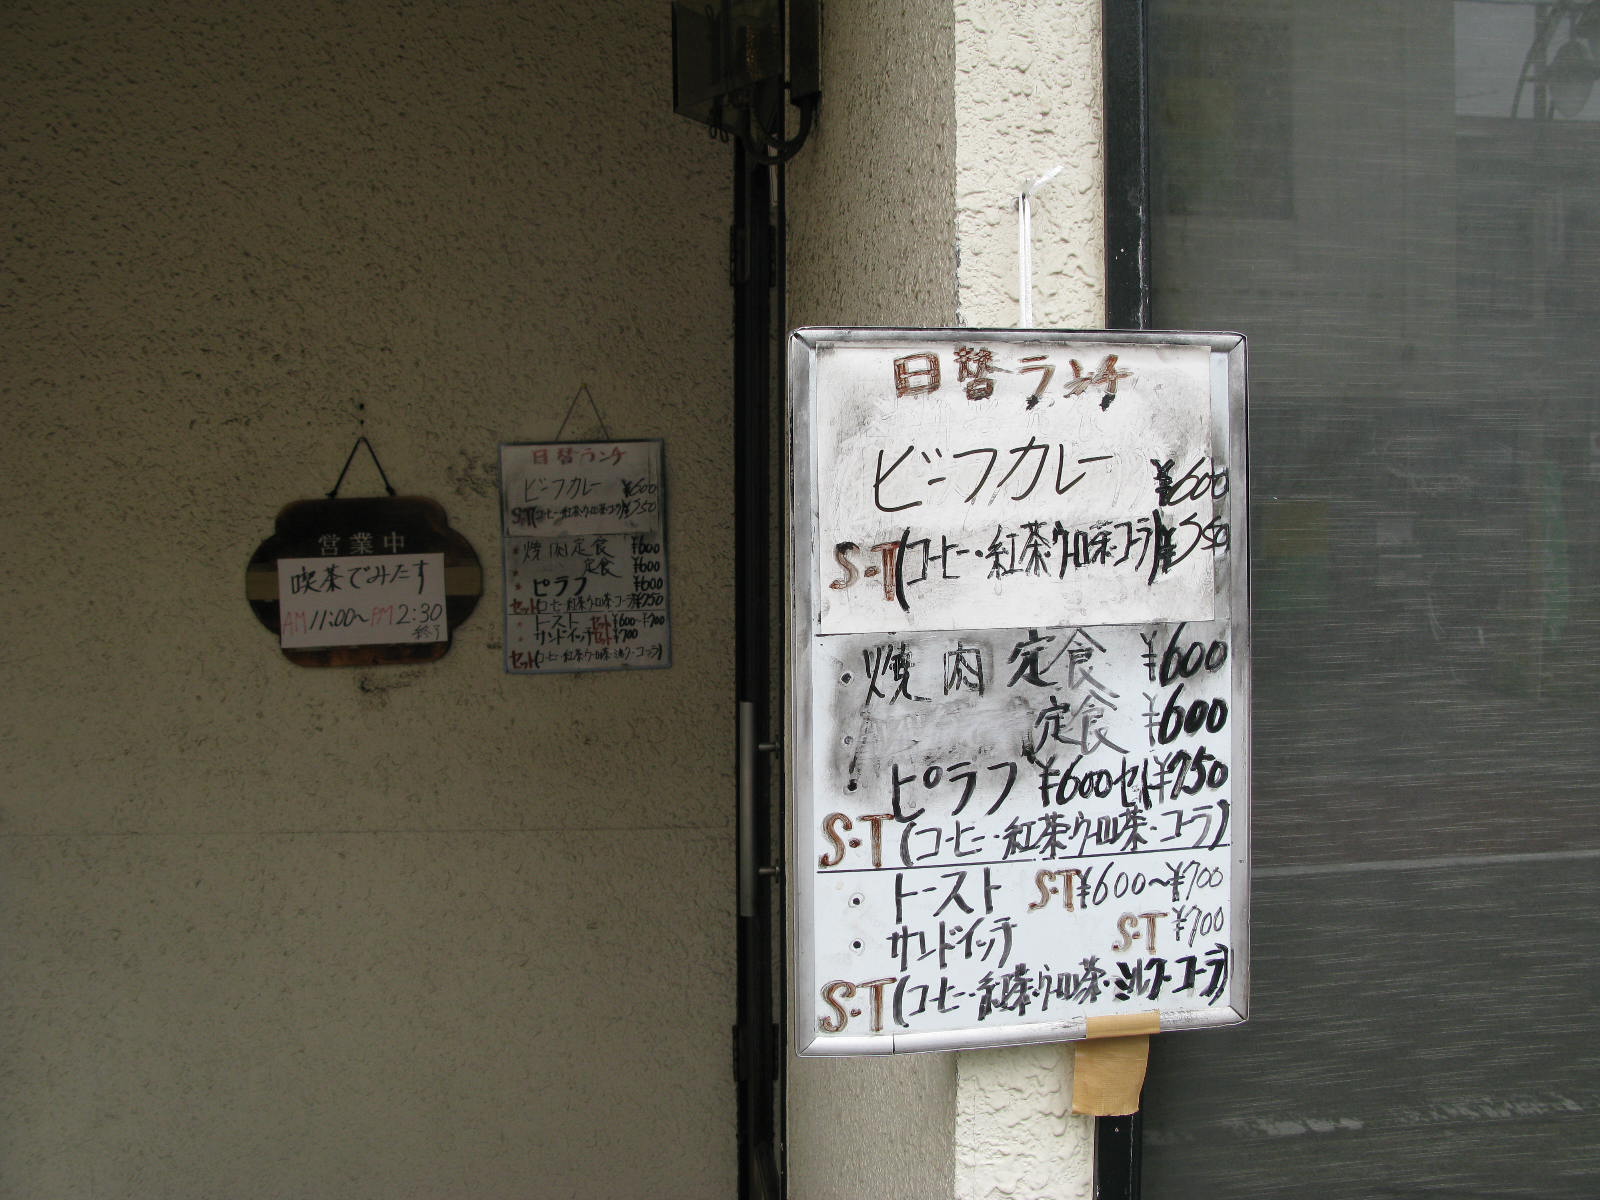 営業中
喫茶でみたす
AM11:00～PM2:30
終了
日替ランチ
ビーフカレー ¥600
S・T(コーヒー・紅茶・ウーロン茶・コーラ)¥750
・焼肉定食 ¥600
・ 定食 ¥600
・ピラフ ¥600
セット(コーヒー・紅茶・ウーロン茶・コーラ)¥750
・トースト セット¥600～¥700
・サンドイッチ セット¥700
セット(コーヒー・紅茶・ウーロン茶・ミルク・コーラ)
日替ランチ
ビーフカレー ¥600
S・T(コーヒー・紅茶・ウーロン茶・コーラ)¥750
・焼肉定食 ¥600
・ 定食 ¥600
・ピラフ ¥600セット¥750
S・T(コーヒー・紅茶・ウーロン茶・コーラ)
・トースト S・T¥600～¥700
・サンドイッチ S・T ¥700
S・T(コーヒー・紅茶・ウーロン茶・ミルク・コーラ)